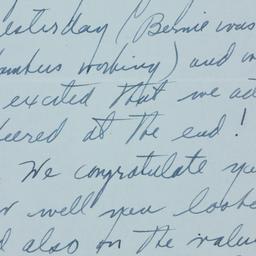 esterday (Bernie was
working) and w
excited that we a
eered at the end!
We congratulate y
well you looke
also on the value